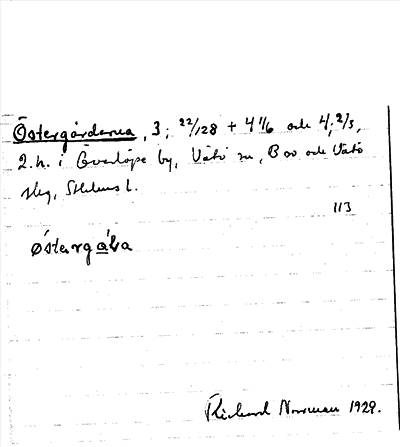 Östergårdarna, 3; 22/128 + 4 1/6 och 4; 2/3,
2. h. i Överlöpe by, Vätö sn, Bro och Vätö
slg, Sthlms l.
113
østergáɫa
Richard Norrman 1929.